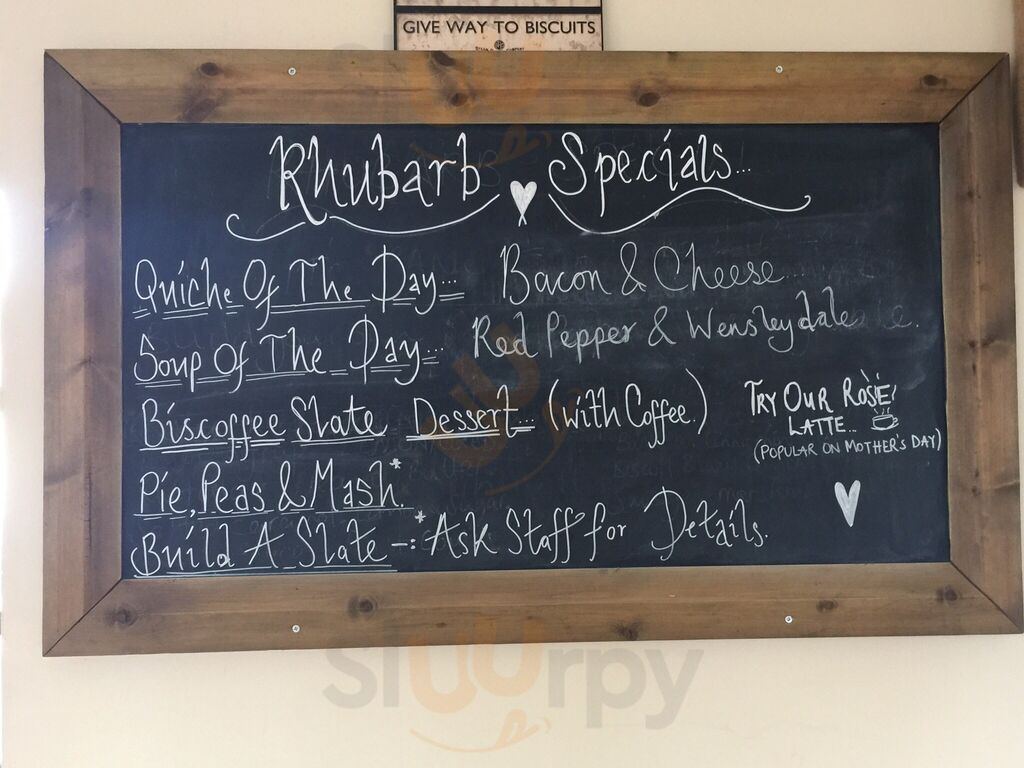 GIVE WAY TO BISCUITS
Rhubarb Specials...
Quiche Of The Day... Bacon & Cheese...
Soup Of The Day... Red Pepper & Wensleydale.
Biscoffee Slate Dessert... (with Coffee.)
TRY OUR ROSÉ!
LATTE...
(POPULAR ON MOTHER'S DAY)
Pie, Peas & Mash.*
Build A Slate -: *Ask Staff for Details.
Sluurpy